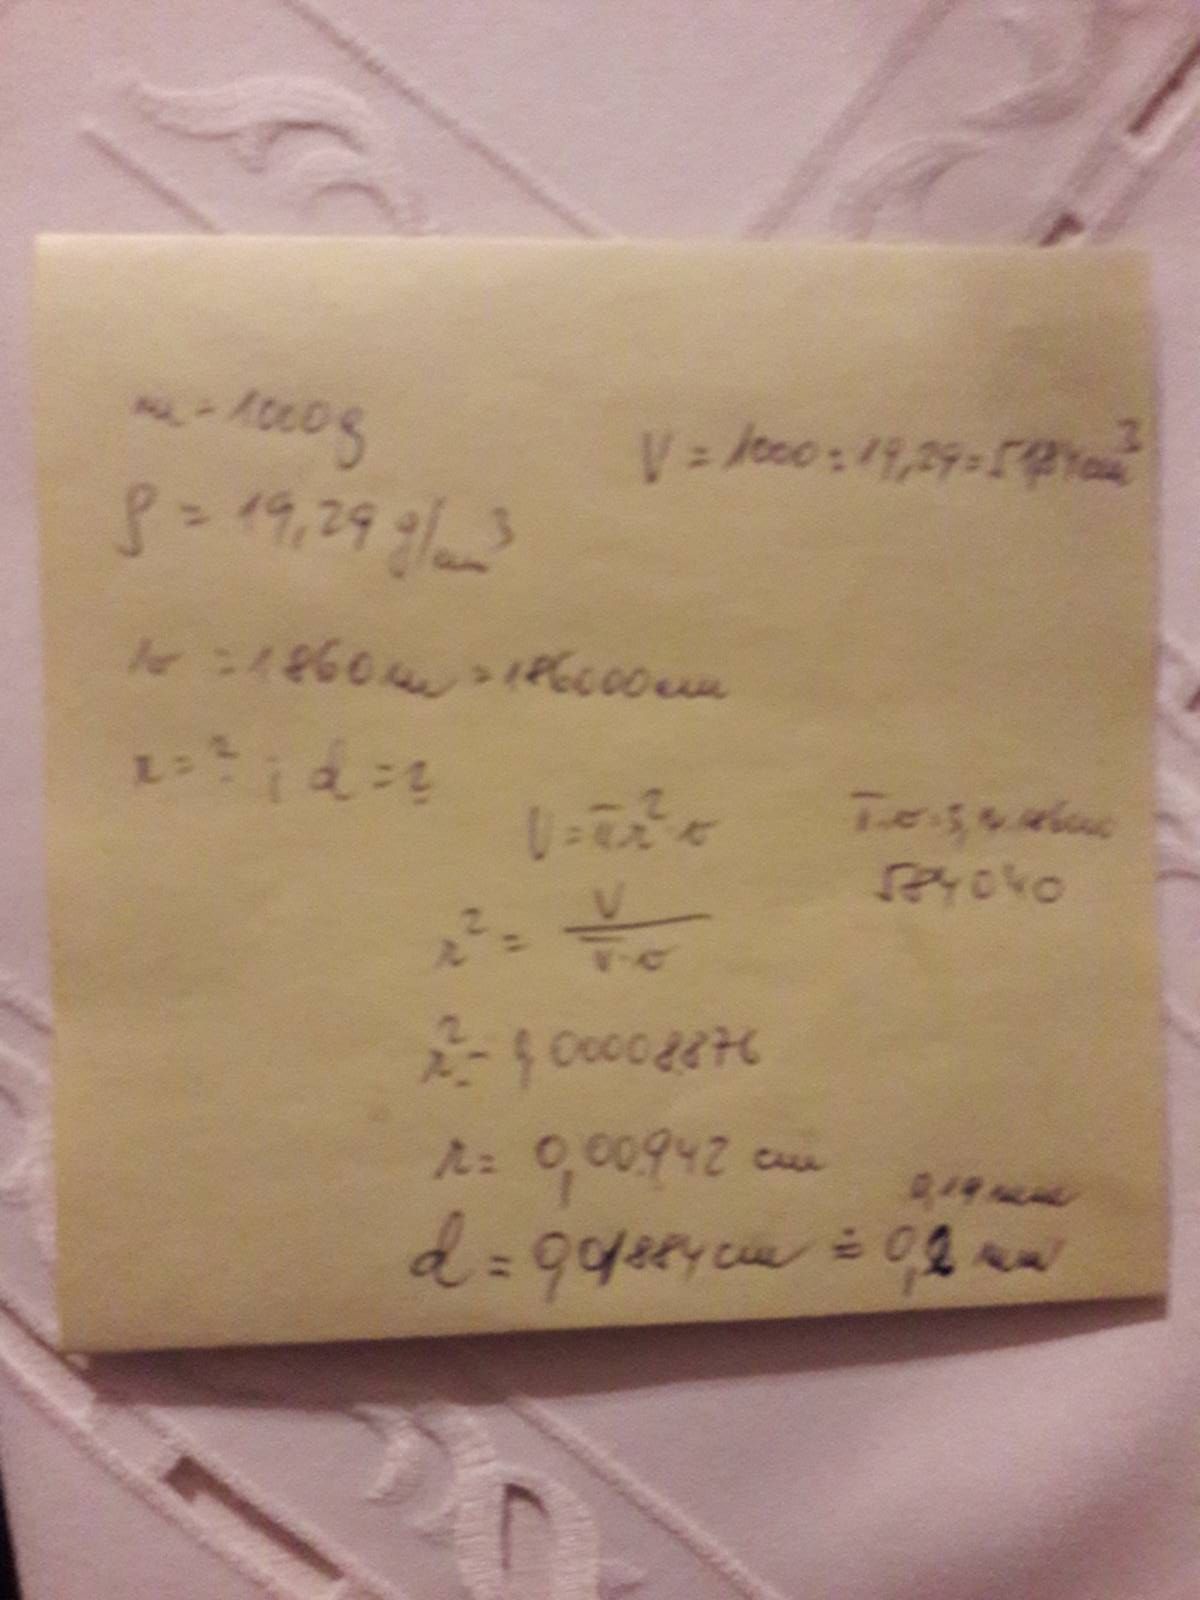 m = 1000 g
V = 1000 : 19,29 = 51,84 cm³
ρ = 19,29 g/cm³
v = 1860 m = 186000 cm
r = ? ; d = ?
V = πr²·v
π·v = 3,14·186000
584040
r² = V / π·v
r² = 0,00008876
r = 0,00942 cm
0,19 mm
d = 0,01884 cm ≐ 0,2 mm